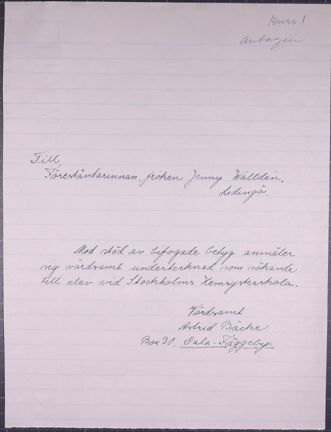 Kurs 1
Antagen
Till
Föreståndarinnan, fröken Jenny Walldén,
Lidingö.
Med stöd av bifogade betyg anmäler
sig vördsamt undertecknad som sökande
till elev vid Stockholms Hemsysterskola.
Vördsamt
Astrid Bäckr
Box 30, Dala-Fäggeby.